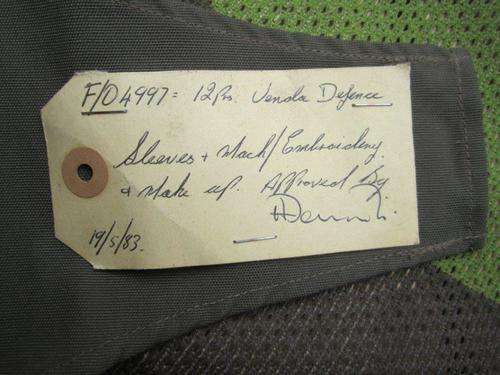 F/O 4997= 12 Prs. Venda Defence
Sleeves + Mach/Embroidery
+ Make up. Approved By
19/5/83.